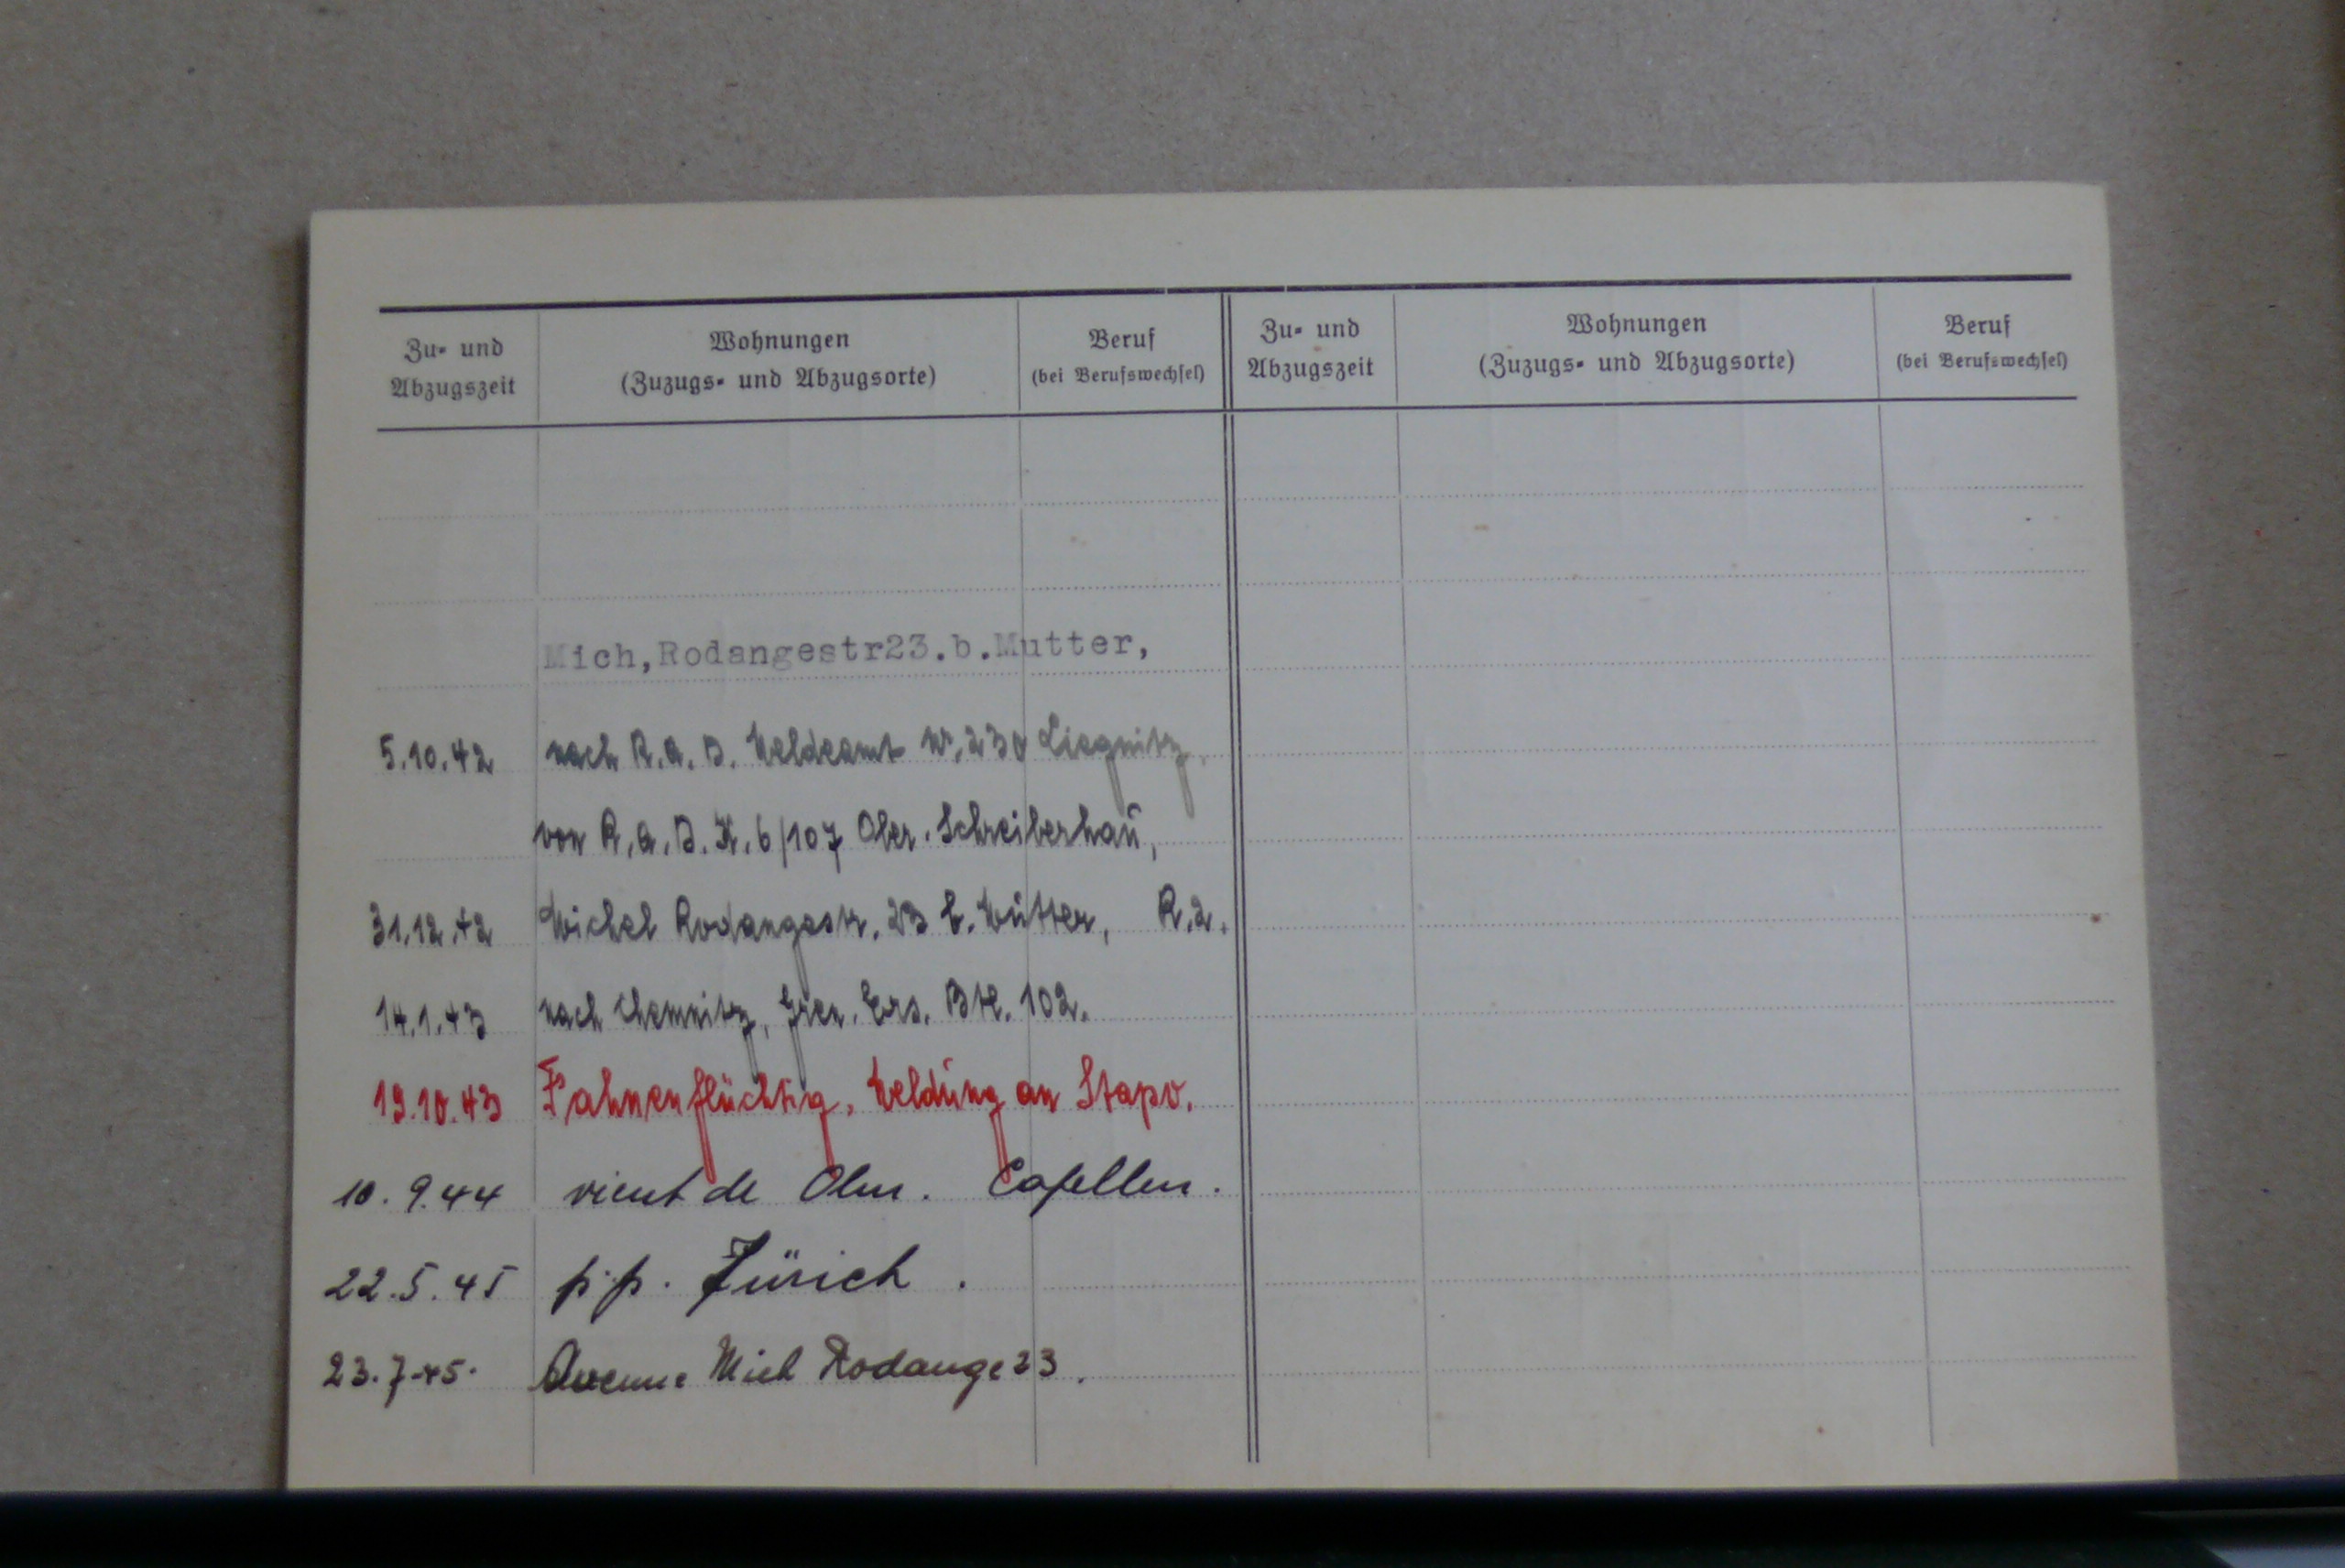 Zu- und Abzugszeit
Wohnungen (Zuzugs- und Abzugsorte)
Beruf (bei Berufswechsel)
Zu- und Abzugszeit
Wohnungen (Zuzugs- und Abzugsorte)
Beruf (bei Berufswechsel)
Mich,Rodangestr23.b.Mutter,
5.10.42 nach R.A.D. Meldeamt Nr. 230 Liegnitz,
von R.A.D. K. 6/107 Ober-Schreiberhau,
31.12.42 Michel Rodangestr. 23 b. Mutter, R.2.
14.1.43 nach Chemnitz, Gren. Ers. Btl. 102.
19.10.43 Fahnenflüchtig, Meldung an Stapo.
10.9.44 vient de Olm. Capellen.
22.5.45 p.p. Zürich.
23.7.45. Avenue Mich Rodange 23.